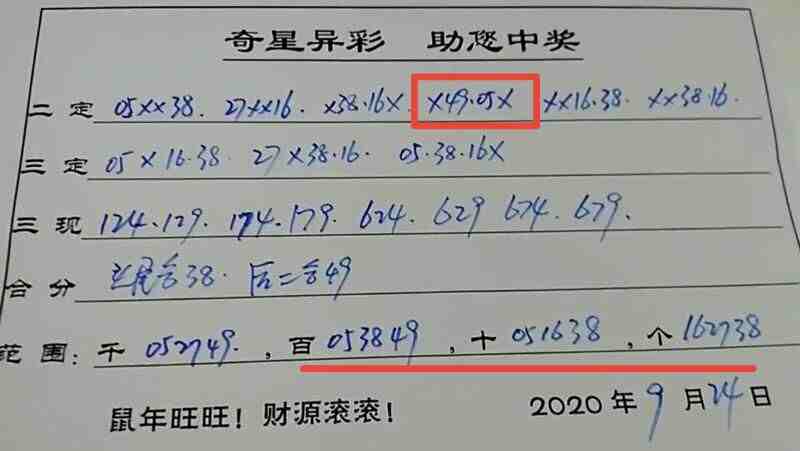 奇星异彩 助您中奖
二定 05××38. 27××16. ×38.16×. ×49.05× ××16.38. ××38.16.
三定 05×16.38. 27×38.16. 05.38.16×
三现 124.129. 174.179. 624. 629 674. 679.
合分 头尾合38. 后二合49
范围: 千 052749. , 百 053849 , 十 051638 , 个 162738
鼠年旺旺! 财源滚滚! 2020年9月24日